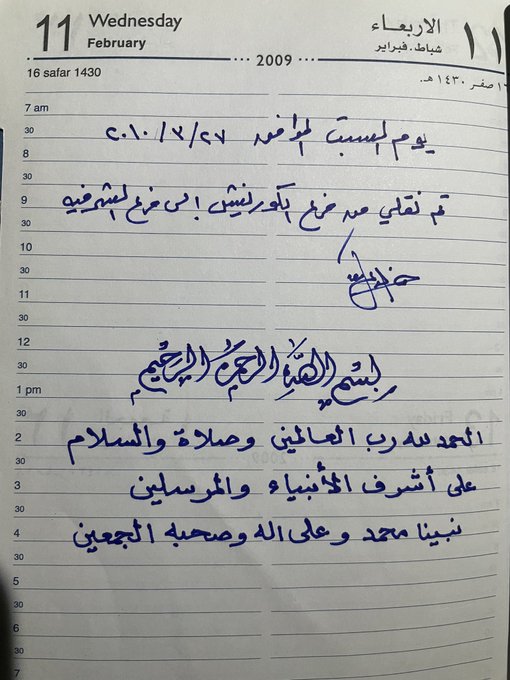 11 Wednesday
February
الاربعاء ١١
شباط.فبراير
2009
16 safar 1430
صفر ١٤٣٠ هـ
7 am
30
يوم السبت الموافق ٢٠١٠/٣/٢٧
8
30
9
تم نقلي من فرع الكورنيش إلى فرع الشرفيه
30
10
30
11
30
12
30
بسم الله الرحمن الرحيم
1 pm
30
2
الحمد لله رب العالمين وصلاة والسلام
30
3
على أشرف الأنبياء والمرسلين
30
4
نبينا محمد وعلى اله وصحبه الجمعين
30
5
30
6
30
7